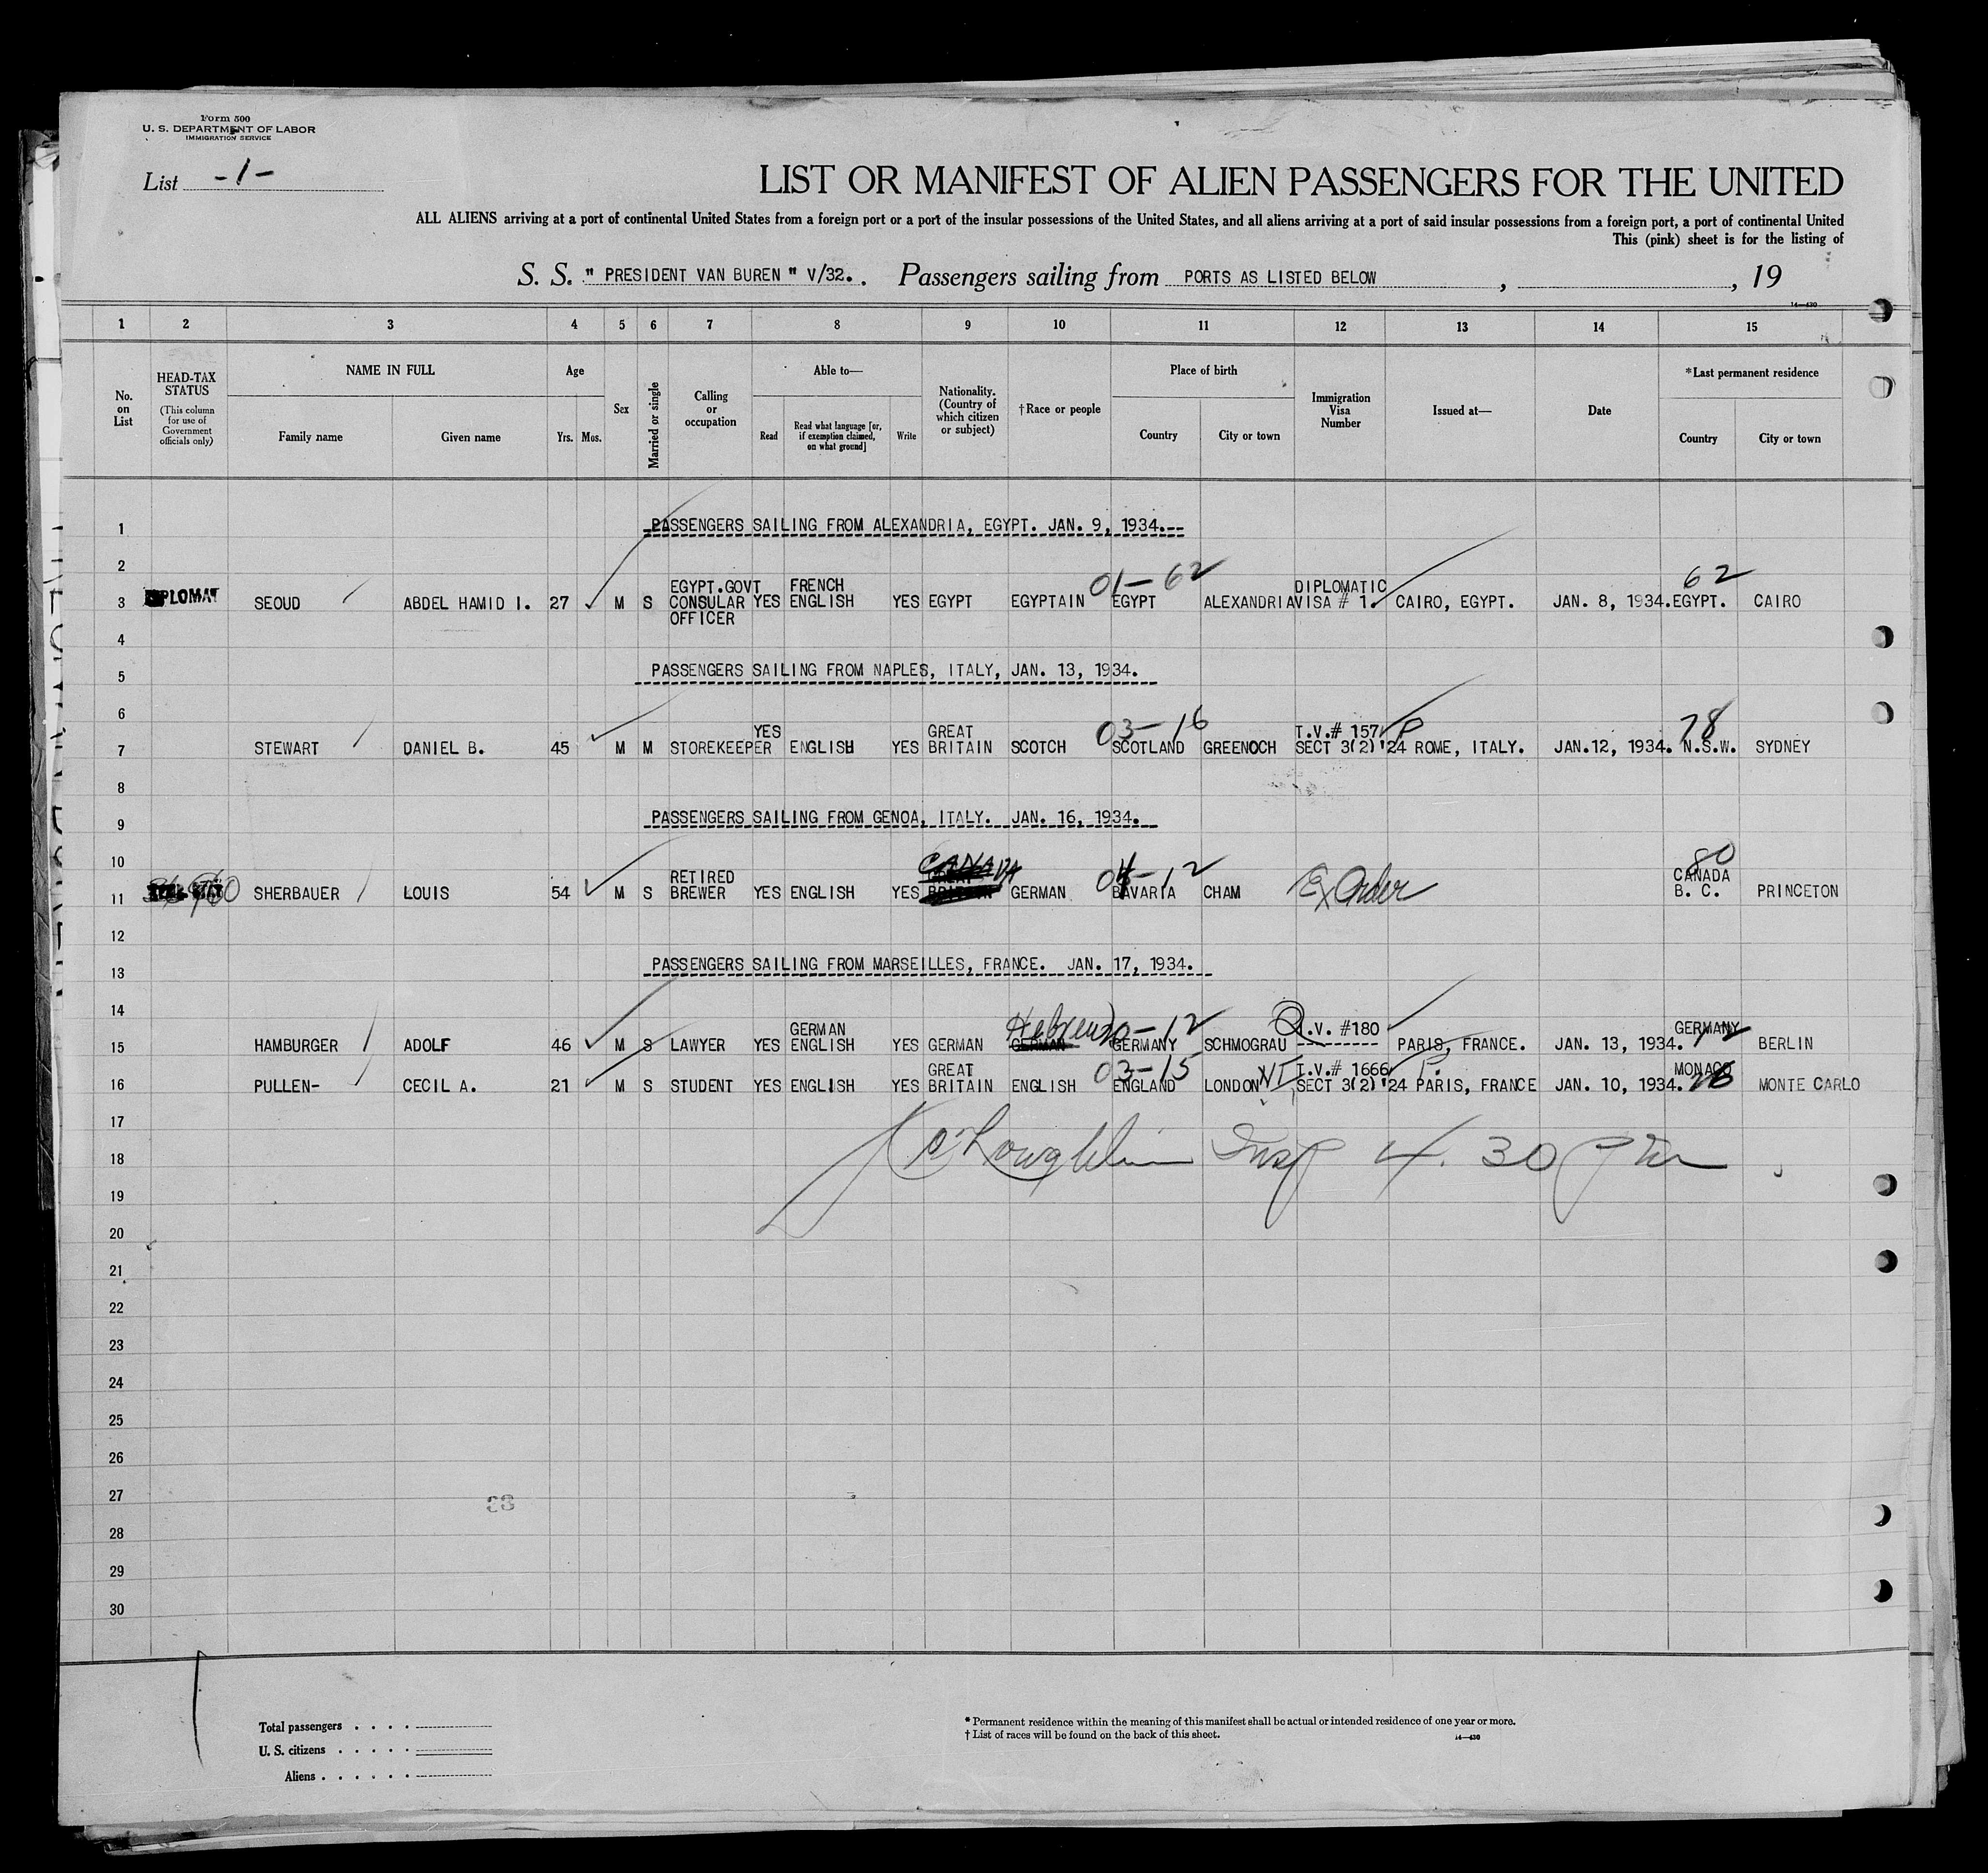 Form 500
U. S. DEPARTMENT OF LABOR
IMMIGRATION SERVICE
List -1-
LIST OR MANIFEST OF ALIEN PASSENGERS FOR THE UNITED
ALL ALIENS arriving at a port of continental United States from a foreign port or a port of the insular possessions of the United States, and all aliens arriving at a port of said insular possessions from a foreign port, a port of continental United
This (pink) sheet is for the listing of
S. S. " PRESIDENT VAN BUREN " V/32. . Passengers sailing from PORTS AS LISTED BELOW , , 19
14—430
1 2 3 4 5 6 7 8 9 10 11 12 13 14 15
No. on List
HEAD-TAX STATUS (This column for use of Government officials only)
NAME IN FULL
Family name Given name
Age
Yrs. Mos.
Sex
Married or single
Calling or occupation
Able to—
Read Read what language [or, if exemption claimed, on what ground] Write
Nationality. (Country of which citizen or subject)
†Race or people
Place of birth
Country City or town
Immigration Visa Number
Issued at—
Date
*Last permanent residence
Country City or town
1 PASSENGERS SAILING FROM ALEXANDRIA, EGYPT. JAN. 9, 1934.--
2 01-62 62
EGYPT.GOVT FRENCH DIPLOMATIC
3 DIPLOMAT SEOUD ABDEL HAMID I. 27 M S CONSULAR YES ENGLISH YES EGYPT EGYPTAIN EGYPT ALEXANDRIA VISA # 1. CAIRO, EGYPT. JAN. 8, 1934. EGYPT. CAIRO
OFFICER
4
5 PASSENGERS SAILING FROM NAPLES, ITALY, JAN. 13, 1934.
6 03-16 78
YES GREAT T.V.# 157 P
7 STEWART DANIEL B. 45 M M STOREKEEPER ENGLISH YES BRITAIN SCOTCH SCOTLAND GREENOCH SECT 3(2)'24 ROME, ITALY. JAN.12, 1934. N.S.W. SYDNEY
8
9 PASSENGERS SAILING FROM GENOA, ITALY. JAN. 16, 1934.
10 CANADA 04-12 80
RETIRED GREAT CANADA
11 SHERBAUER LOUIS 54 M S BREWER YES ENGLISH YES BRITAIN GERMAN BAVARIA CHAM Ex Order B. C. PRINCETON
12
13 PASSENGERS SAILING FROM MARSEILLES, FRANCE. JAN. 17, 1934.
14 Hebrew -12
GERMAN Q.V. #180 GERMANY 12
15 HAMBURGER ADOLF 46 M S LAWYER YES ENGLISH YES GERMAN GERMAN GERMANY SCHMOGRAU PARIS, FRANCE. JAN. 13, 1934. BERLIN
GREAT 03-15 T.V.# 1666 P. MONACO
16 PULLEN- CECIL A. 21 M S STUDENT YES ENGLISH YES BRITAIN ENGLISH ENGLAND LONDON SECT 3(2)'24 PARIS, FRANCE JAN. 10, 1934. MONTE CARLO
17
18 Insp 4.30 pm
19
20
21
22
23
24
25
26
27
28
29
30
Total passengers . . . .
U. S. citizens . . . . .
Aliens . . . . . .
* Permanent residence within the meaning of this manifest shall be actual or intended residence of one year or more.
† List of races will be found on the back of this sheet.
14—430